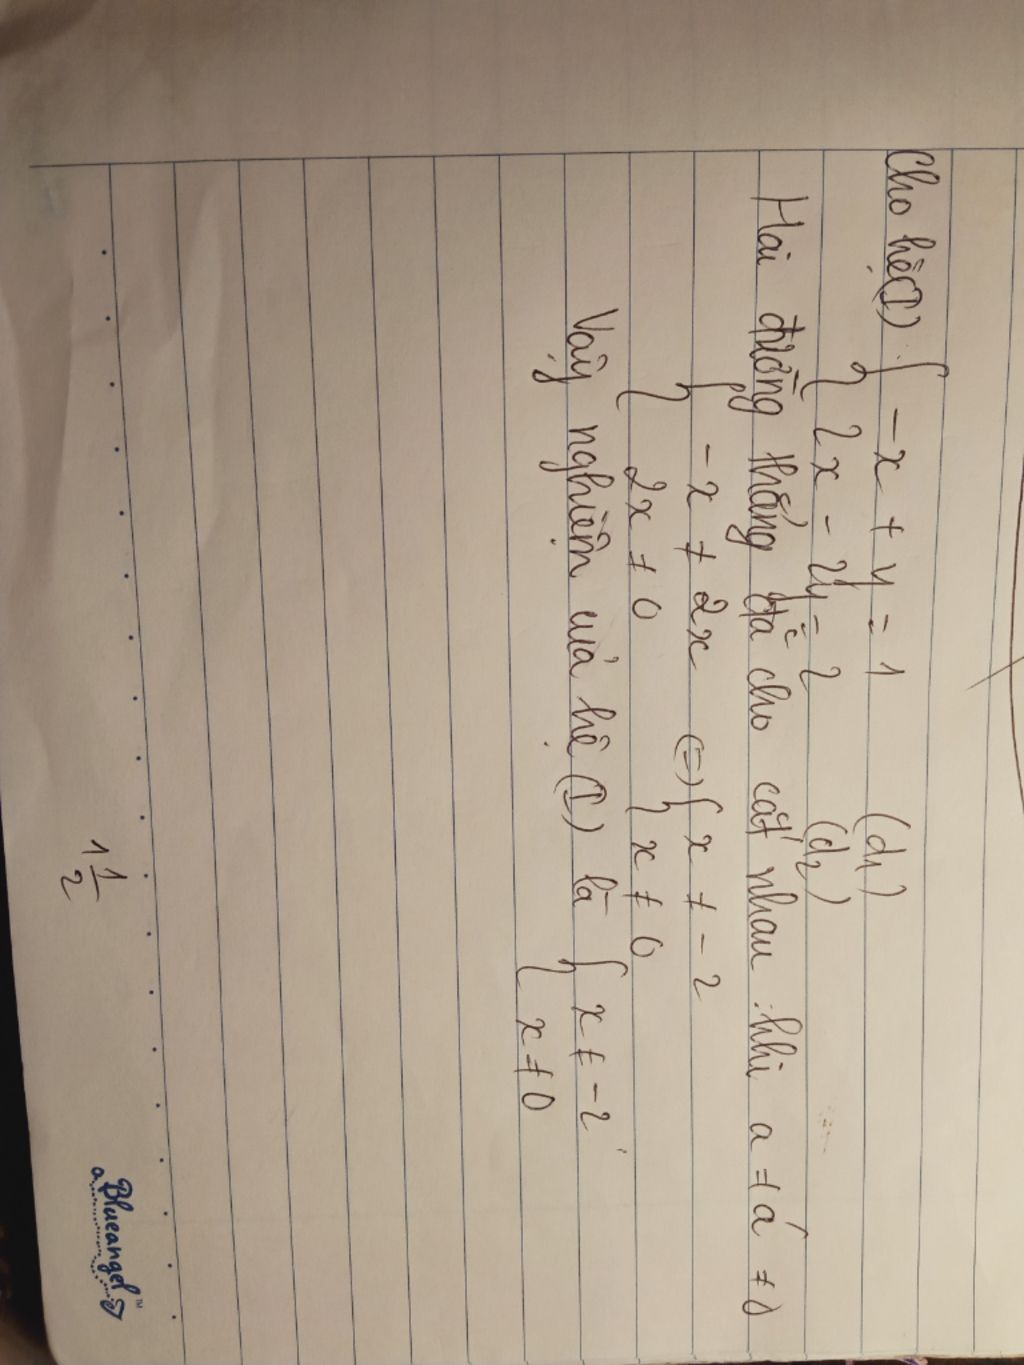 Cho hệ (I) { -x + y = 1 (d1)
{ 2x - 2y = 2 (d2)
Hai đường thẳng đã cho cắt nhau khi a ≠ a' ≠ 0
{ -x ≠ 2x (=) { x ≠ -2
{ 2x ≠ 0 { x ≠ 0
Vậy nghiệm của hệ (I) là { x ≠ -2
{ x ≠ 0
1 1/2
Blueangel™